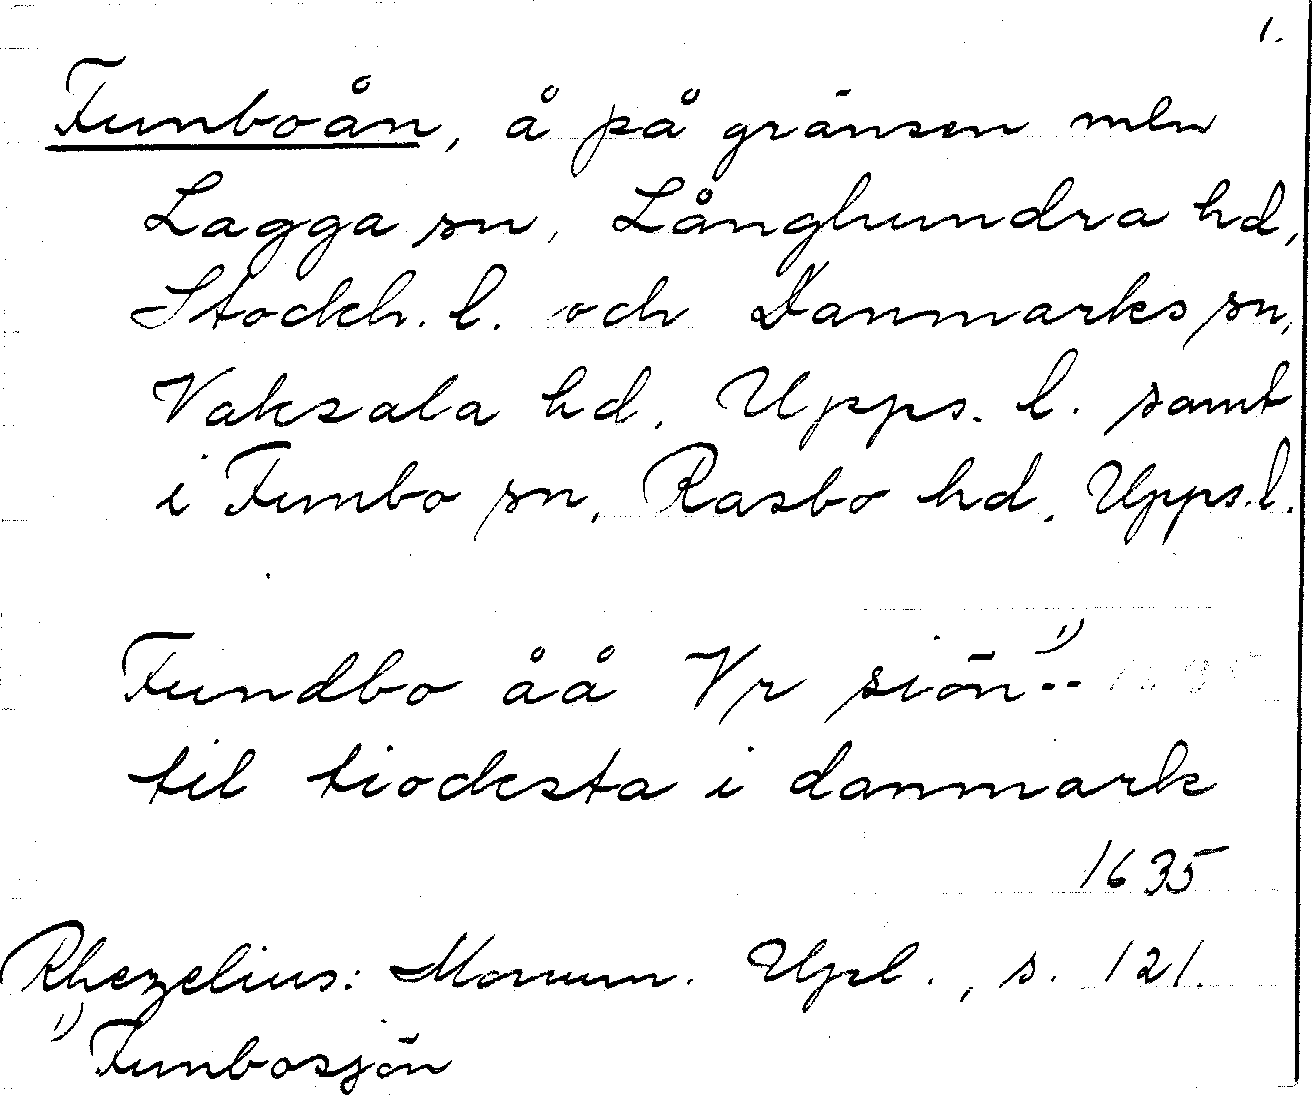 1.
Funboån, å på gränsen mln
Lagga sn, Långhundra hd,
Stockh. l. och Danmarks sn,
Vaksala hd, Upps. l. samt
i Funbo sn, Rasbo hd, Upps. l.
Fundbo åå Vr siön 1) --
til tiocksta i danmark
1635
Rhezelius: Monum. Upl., s. 121.
1) Funbosjön